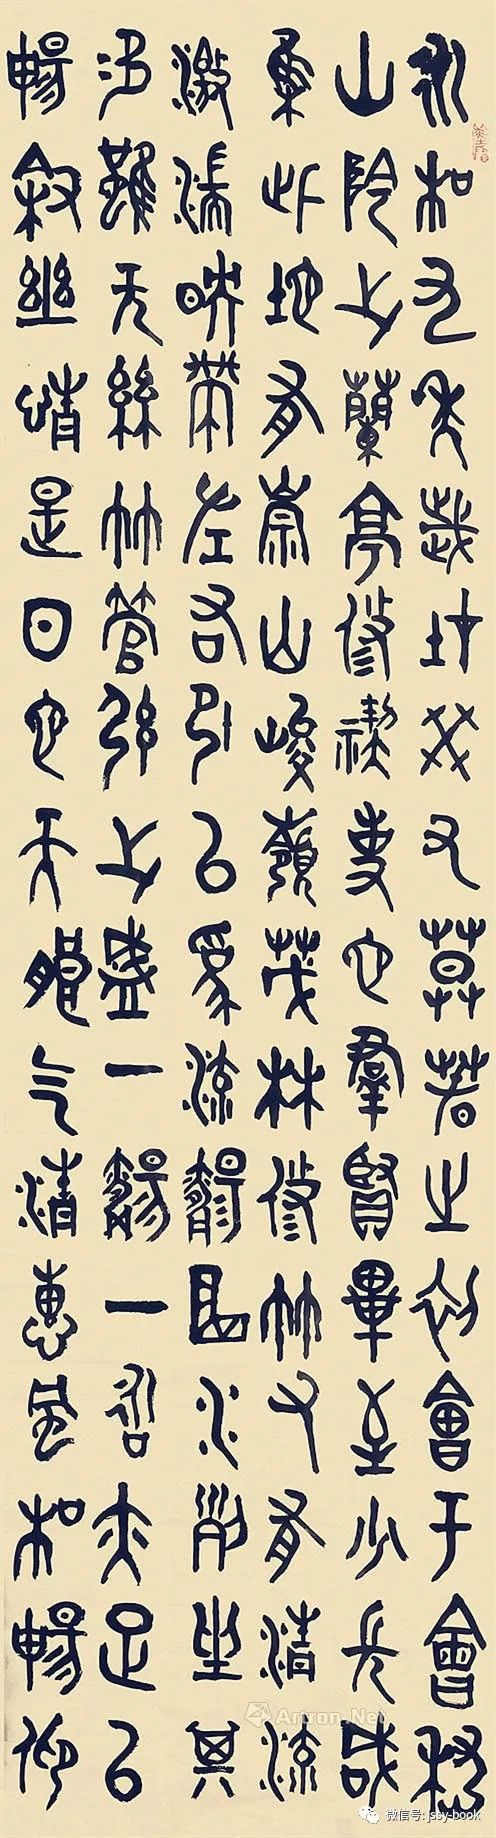 永和九年歲在癸丑暮春之初會于會稽
山陰之蘭亭修禊事也群賢畢至少長咸
集此地有崇山峻嶺茂林修竹又有清流
激湍映帶左右引以為流觴曲水列坐其
次雖無絲竹管弦之盛一觴一詠亦足以
暢敘幽情是日也天朗气清惠風和暢仰
Artron.Net
微信号: jssy-book